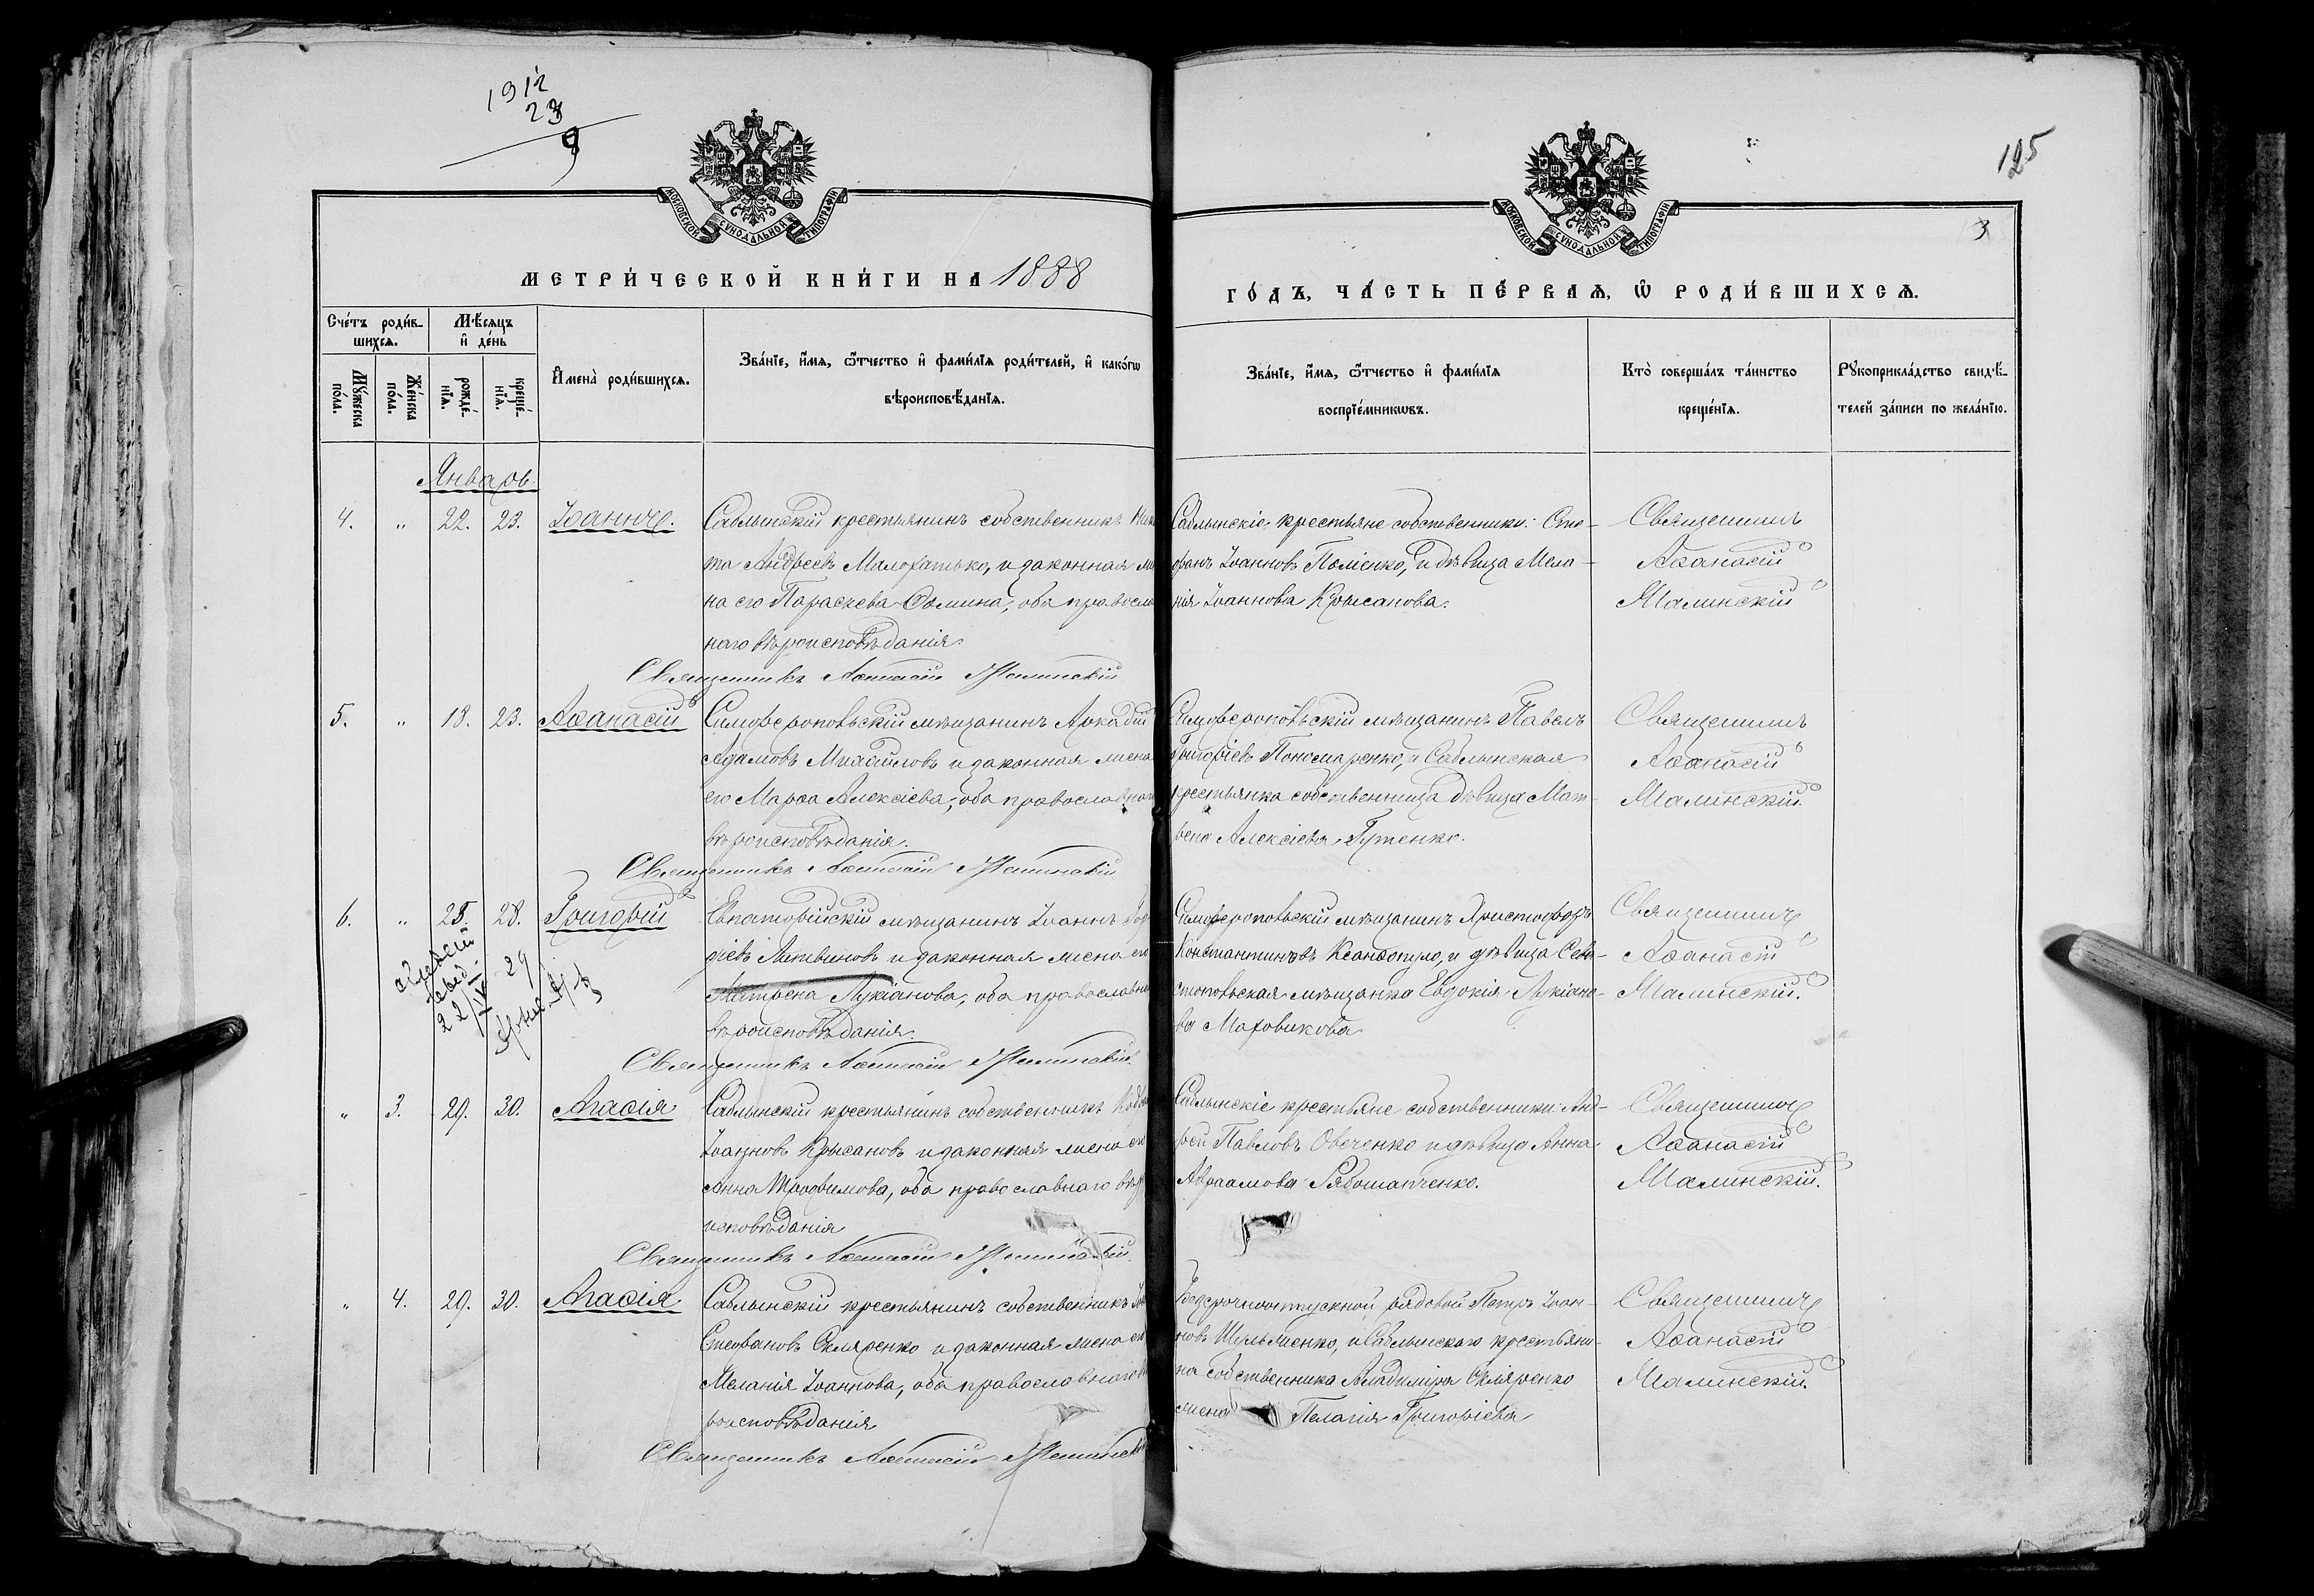 1912
23
9
125
3
МОСКОВСКОЙ СѴНОДАЛЬНОЙ ТИПОГРАФІИ
МОСКОВСКОЙ СѴНОДАЛЬНОЙ ТИПОГРАФІИ
МЕТРИ́ЧЕСКОЙ КНИ́ГИ НА 1888
ГО́ДЪ, ЧА́СТЬ ПЕ́РВАѦ, Ѽ РОДИ́ВШИХСѦ.
Сче́тъ роди́в-
шихсѧ.
Мѣ́сѧцъ
и҆ де́нь
Мꙋ́жеска
по́ла.
Же́нска
по́ла.
рожде́-
нїѧ.
креще́-
нїѧ.
И҆мена̀ роди́вшихсѧ.
Зва́нїе, и҆́мѧ, ѻ҆́тчество и҆ фами́лїѧ роди́телей, и҆ како́гѡ
вѣроисповѣ́данїѧ.
Зва́нїе, и҆́мѧ, ѻ҆́тчество и҆ фами́лїѧ
воспрїе́мникѡвъ.
Кто̀ соверша́лъ та́инство
креще́нїѧ.
Рꙋкоприкла́дство свидѣ́-
телей за́писи по жела́нїю.
Январь
4. „ 22. 23. Іоаннъ.
Саблынскій крестьянинъ собственникъ Ники
та Андреевъ Малофатько, и законная же
на его Параскева Ѳомина, оба правосла
наго вѣроисповѣданія.
Священникъ Аѳанасій Малинскій
Саблынскіе крестьяне собственники: Сте-
фанъ Іоанновъ Поліенко, и дѣвица Мела-
нія Іоаннова Крысанова.
Священникъ
Аѳанасій
Малинскій
5. „ 18. 23. Аѳанасій
Симферопольскій мѣщанинъ Аркадій
Адамовъ Михайловъ и законная жена
его Марѳа Алексіева, оба православнаго
вѣроисповѣданія.
Священникъ Аѳанасій Малинскій
Симферопольскій мѣщанинъ Павелъ
Григоріевъ Пономаренко, и Саблынская
крестьянка собственница дѣвица Мат-
рена Алексіева Гутенко.
Священникъ
Аѳанасій
Малинскій.
6. „ 25. 28. Григорій
Евпаторійскій мѣщанинъ Іоаннъ
ріевъ Литвиновъ и законная жена его
Матрона Лукіанова, оба православна
вѣроисповѣданія.
Священникъ Аѳанасій Малинскій.
Симферопольскій мѣщанинъ Христофоръ
Константиновъ Ксандопуло, и дѣвица Сева-
стопольская мѣщанка Евдокія Лукіано-
ва Маховикова
Священникъ
Аѳанасій
Малинскій.
„ 3. 29. 30. Агаѳія
Саблынскій крестьянинъ собственникъ
Іоанновъ Крысановъ и законная жена его
Анна Трофимова, оба православнаго вѣро
исповѣданія
Священникъ Аѳанасій Малинскій.
Саблынскіе крестьяне собственники: Анд-
рей Павловъ Овеченко и дѣвица Анна
Авраамова Рябошапченко.
Священникъ
Аѳанасій
Малинскій.
„ 4. 29. 30. Агаѳія
Саблынскій крестьянинъ собственникъ
Стефановъ Скляренко и законная жена его
Меланія Іоаннова, оба православнаго вѣ
роисповѣданія
Священникъ Аѳанасій Малинскій
Безсрочноотпускной рядовой Петръ Іоан-
новъ Шульженко, и Саблынскаго крестьяни-
на собственника Владиміра Скляренко
жена Пелагія Григоріева
Священникъ
Аѳанасій
Малинскій.